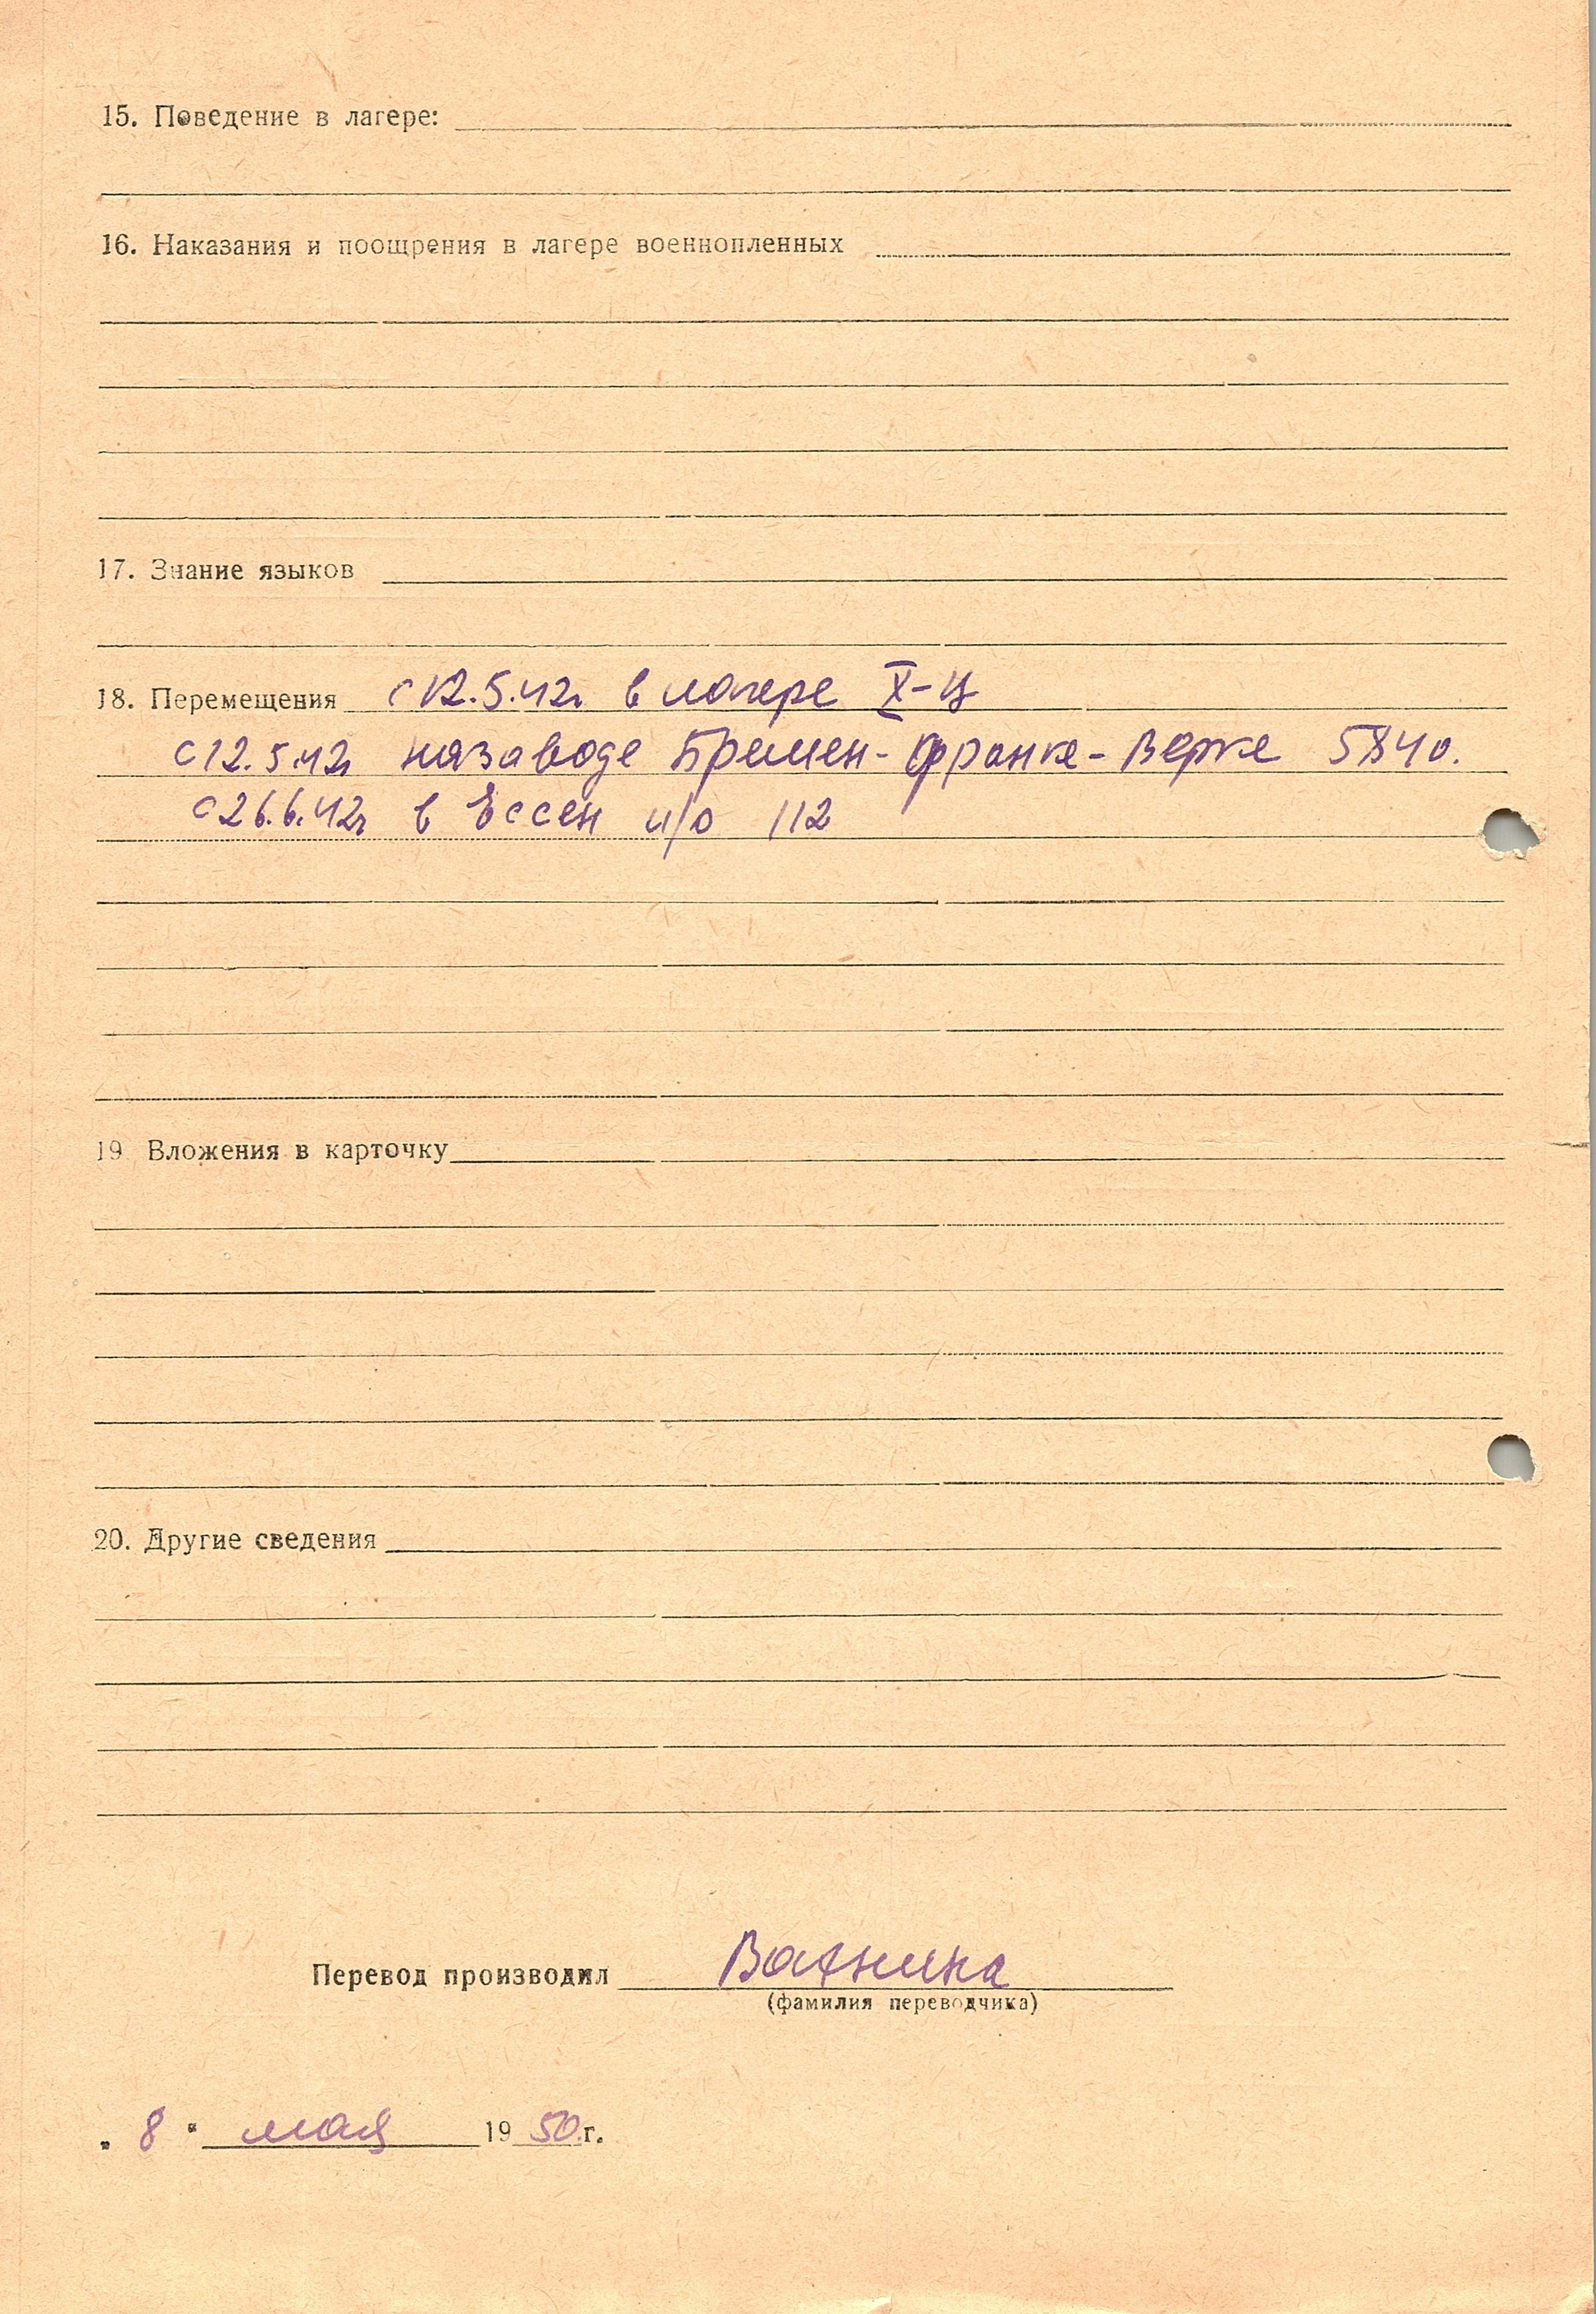 15. Поведение в лагере:
16. Наказания и поощрения в лагере военнопленных
17. Знание языков
18. Перемещения с 12.5.42г в лагере X-Ц
с 12.5.42г на заводе Бремен-Франке-Верке 5840.
с 26.6.42г в Ессен 112
19 Вложения в карточку
20. Другие сведения
Перевод производил
(фамилия переводчика)
"8" мая 1950 г.